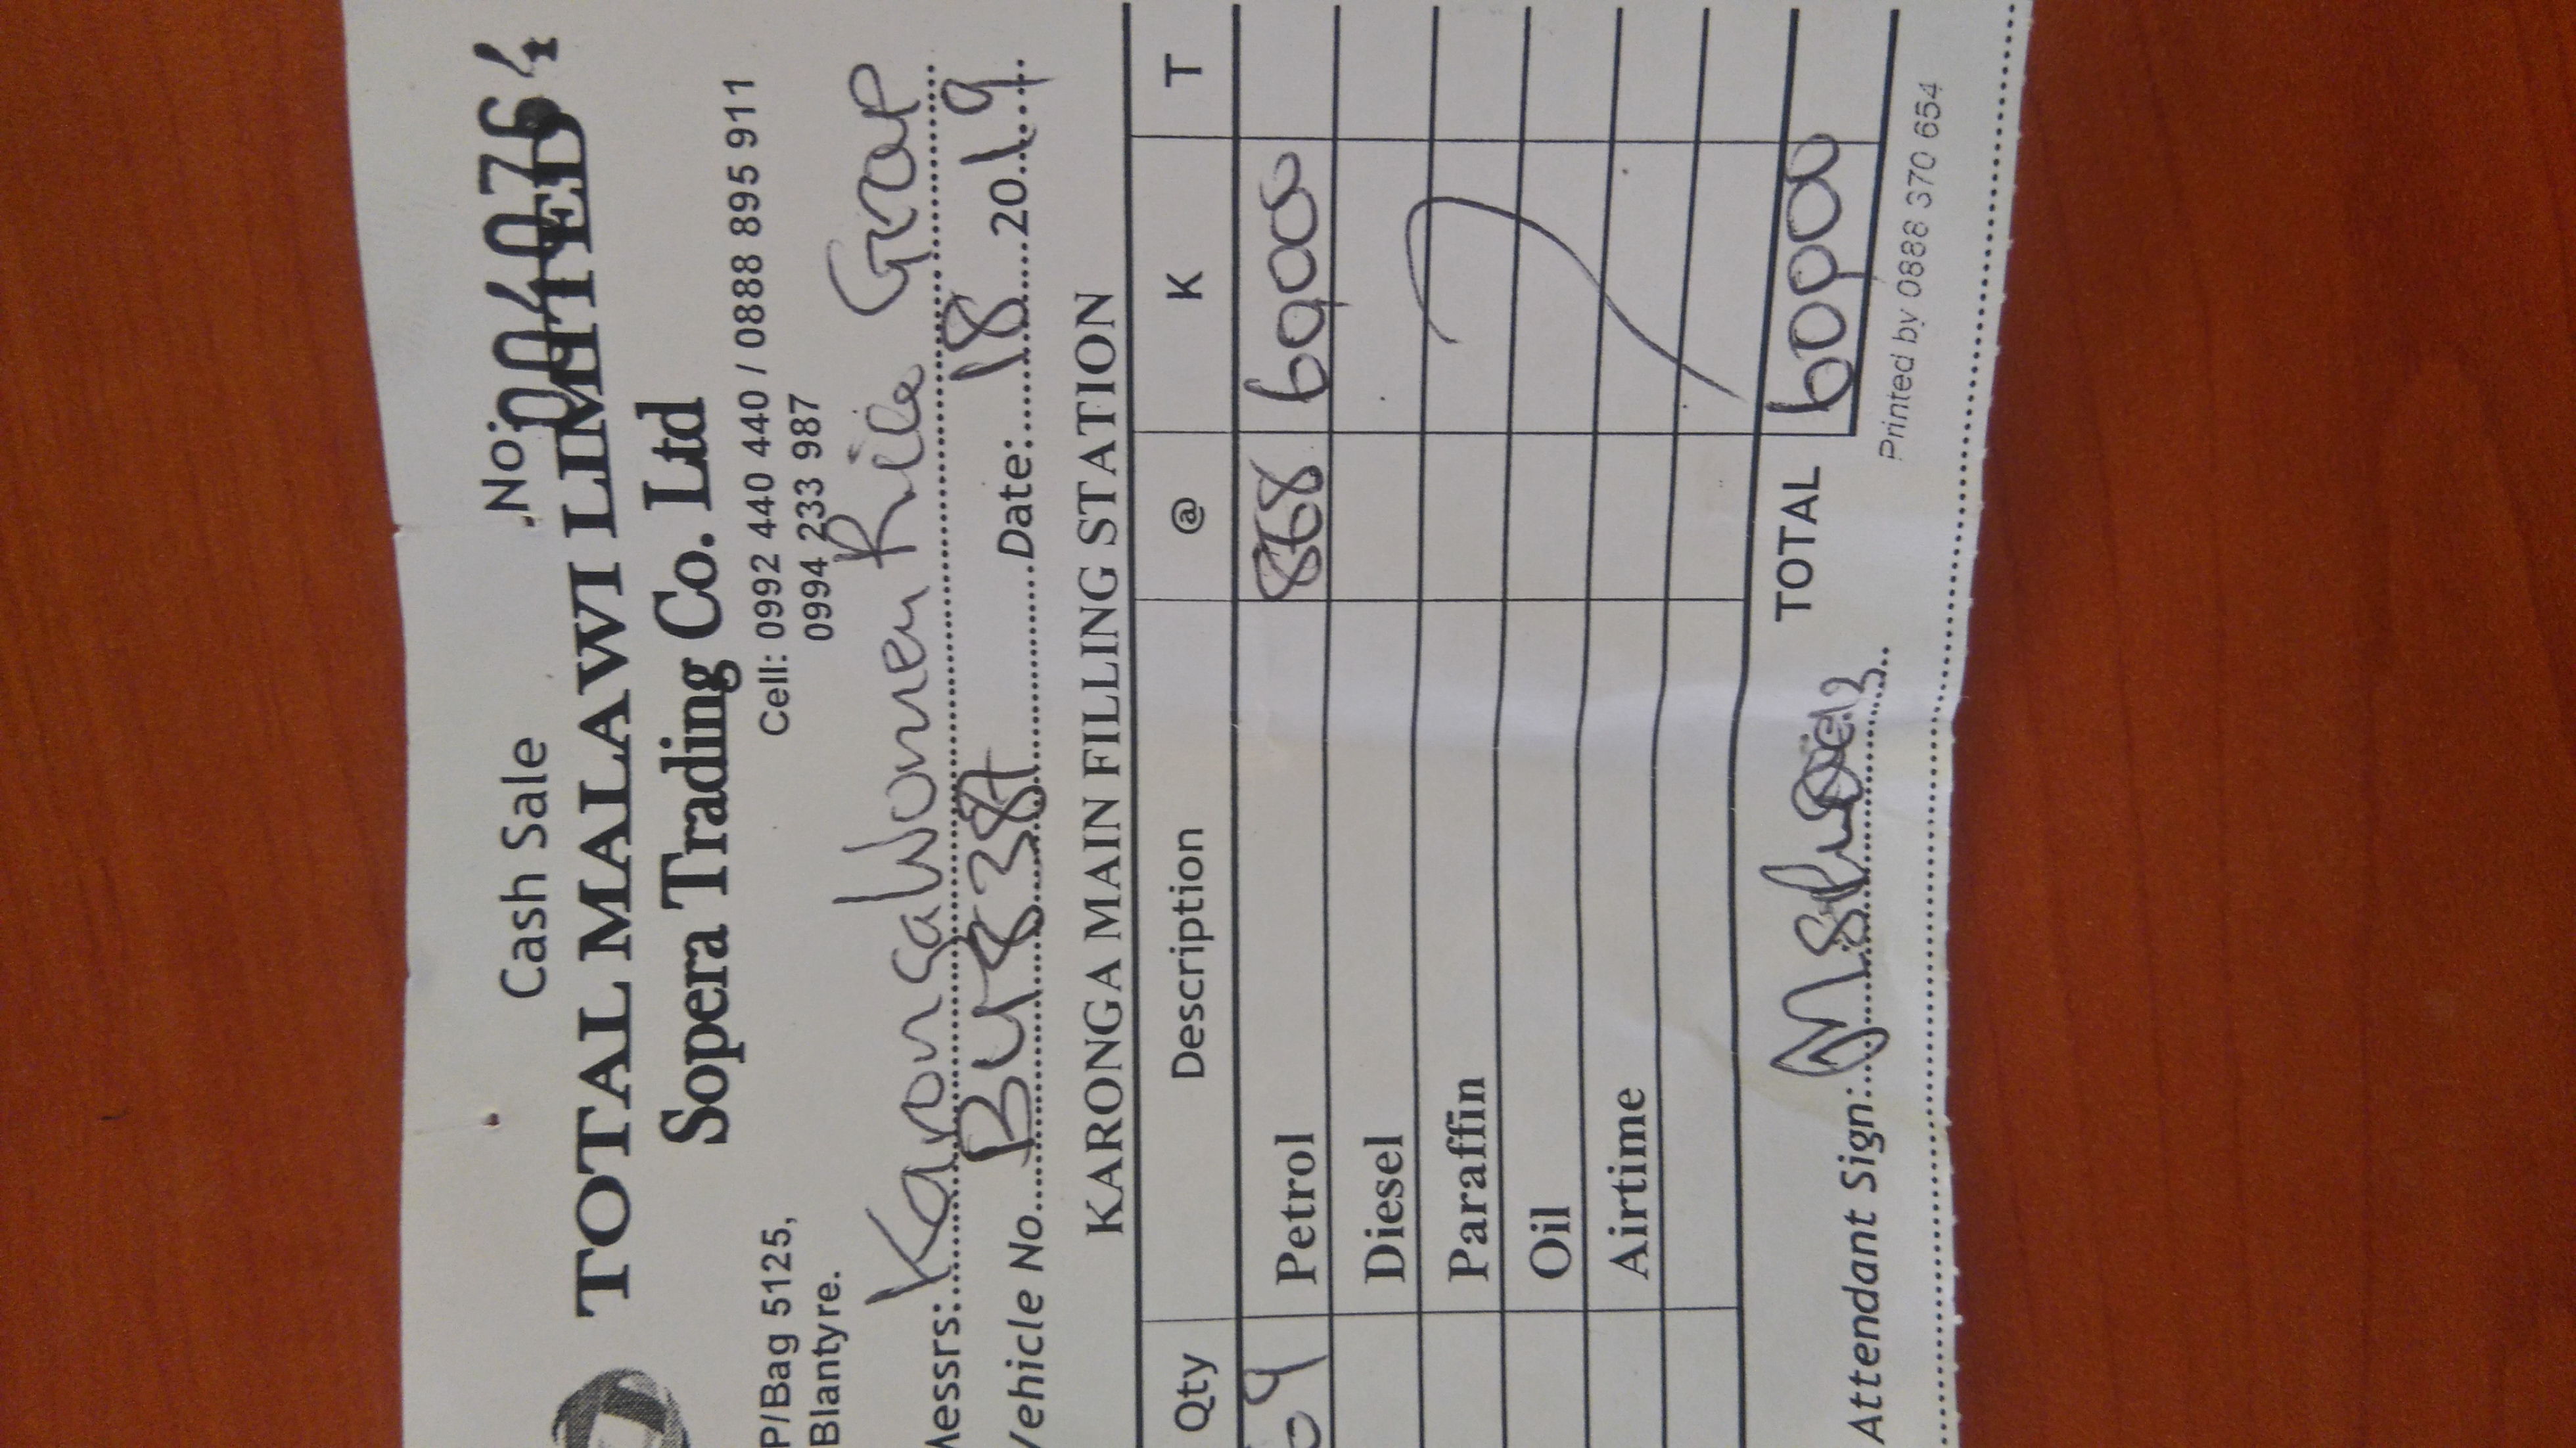 Cash Sale No: 0040764
TOTAL MALAWI LIMITED
Sopera Trading Co. Ltd
P/Bag 5125, Cell: 0992 440 440 / 0888 895 911
Blantyre. 0994 233 987
Messrs: Karonga Women Rice Group
Vehicle No. Date: 18 2019
KARONGA MAIN FILLING STATION
Qty Description @ K T
69 Petrol 868 60000
Diesel
Paraffin
Oil
Airtime
Attendant Sign: TOTAL 60000
Printed by 0888 370 654